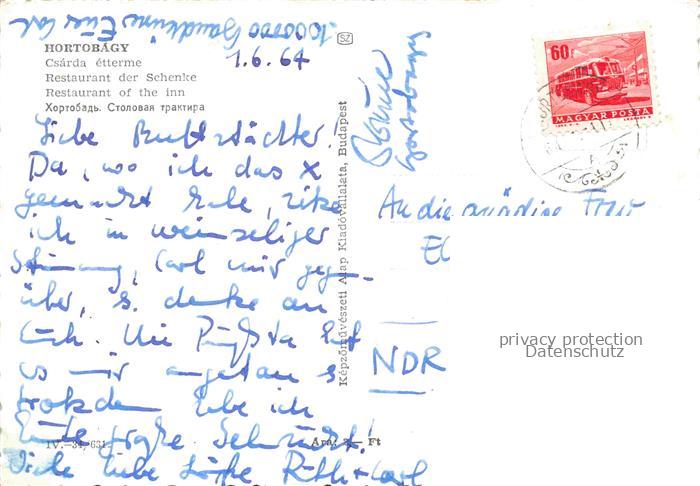 1000000 Handküsse Euer Carl
HORTOBÁGY
Csárda étterme
Restaurant der Schenke
Restaurant of the inn
Хортобадь. Столовая трактира
1.6.64
Liebe
Da, wo ich das X
gemacht habe, sitze
ich in weinseliger
Stimmung, Carl mir gegen-
über, u. denke an
Euch. Die Pußta hat
es mir angetan u
trotzdem habe ich
Heute große Sehnsucht!
Viele liebe Grüße Ruth + Carl
IV.-34,631
Ára: 2.- Ft
Képzőművészeti Alap Kiadóvállalata, Budapest
SZ
Hortobagy
60f
MAGYAR POSTA
An die gnädige Frau
El
NDR
privacy protection
Datenschutz